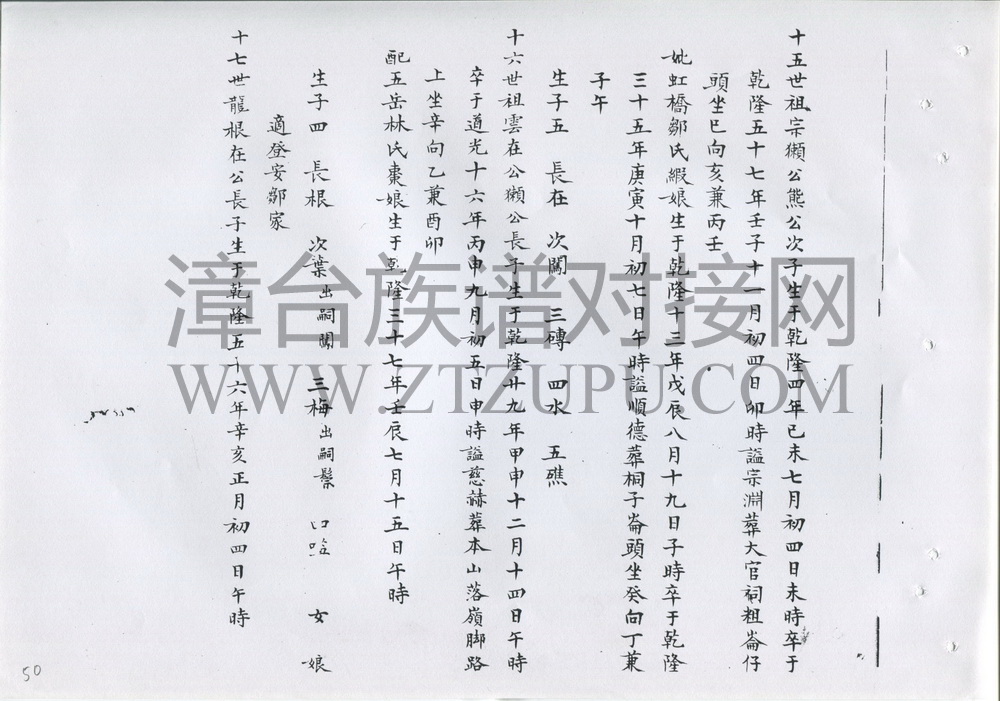 十五世祖宗獺公熊公次子生于乾隆四年已未七月初四日未時卒于
乾隆五十七年壬子十一月初四日卯時謚宗淵葬大官祠粗崙仔
頭坐巳向亥兼丙壬
妣虹橋鄒氏緞娘生于乾隆十三年戊辰八月十九日子時卒于乾隆
三十五年庚寅十月初七日午時謚順德葬桐子崙頭坐癸向丁兼
子午
生子五 長在 次闖 三磚 四水 五礁
十六世祖雲在公獺公長子生于乾隆廿九年甲申十二月十四日午時
卒于道光十六年丙申九月初五日申時謚慈赫葬本山落嶺脚路
上坐辛向乙兼酉卯
配五岳林氏棗娘生于乾隆三十七年壬辰七月十五日午時
生子四 長根 次葉出嗣闖 三梅出嗣 口 女 娘
適登安鄒家
十七世龍根在公長子生于乾隆五十六年辛亥正月初四日午時
50
漳台族谱对接网
WWW.ZTZUPU.COM